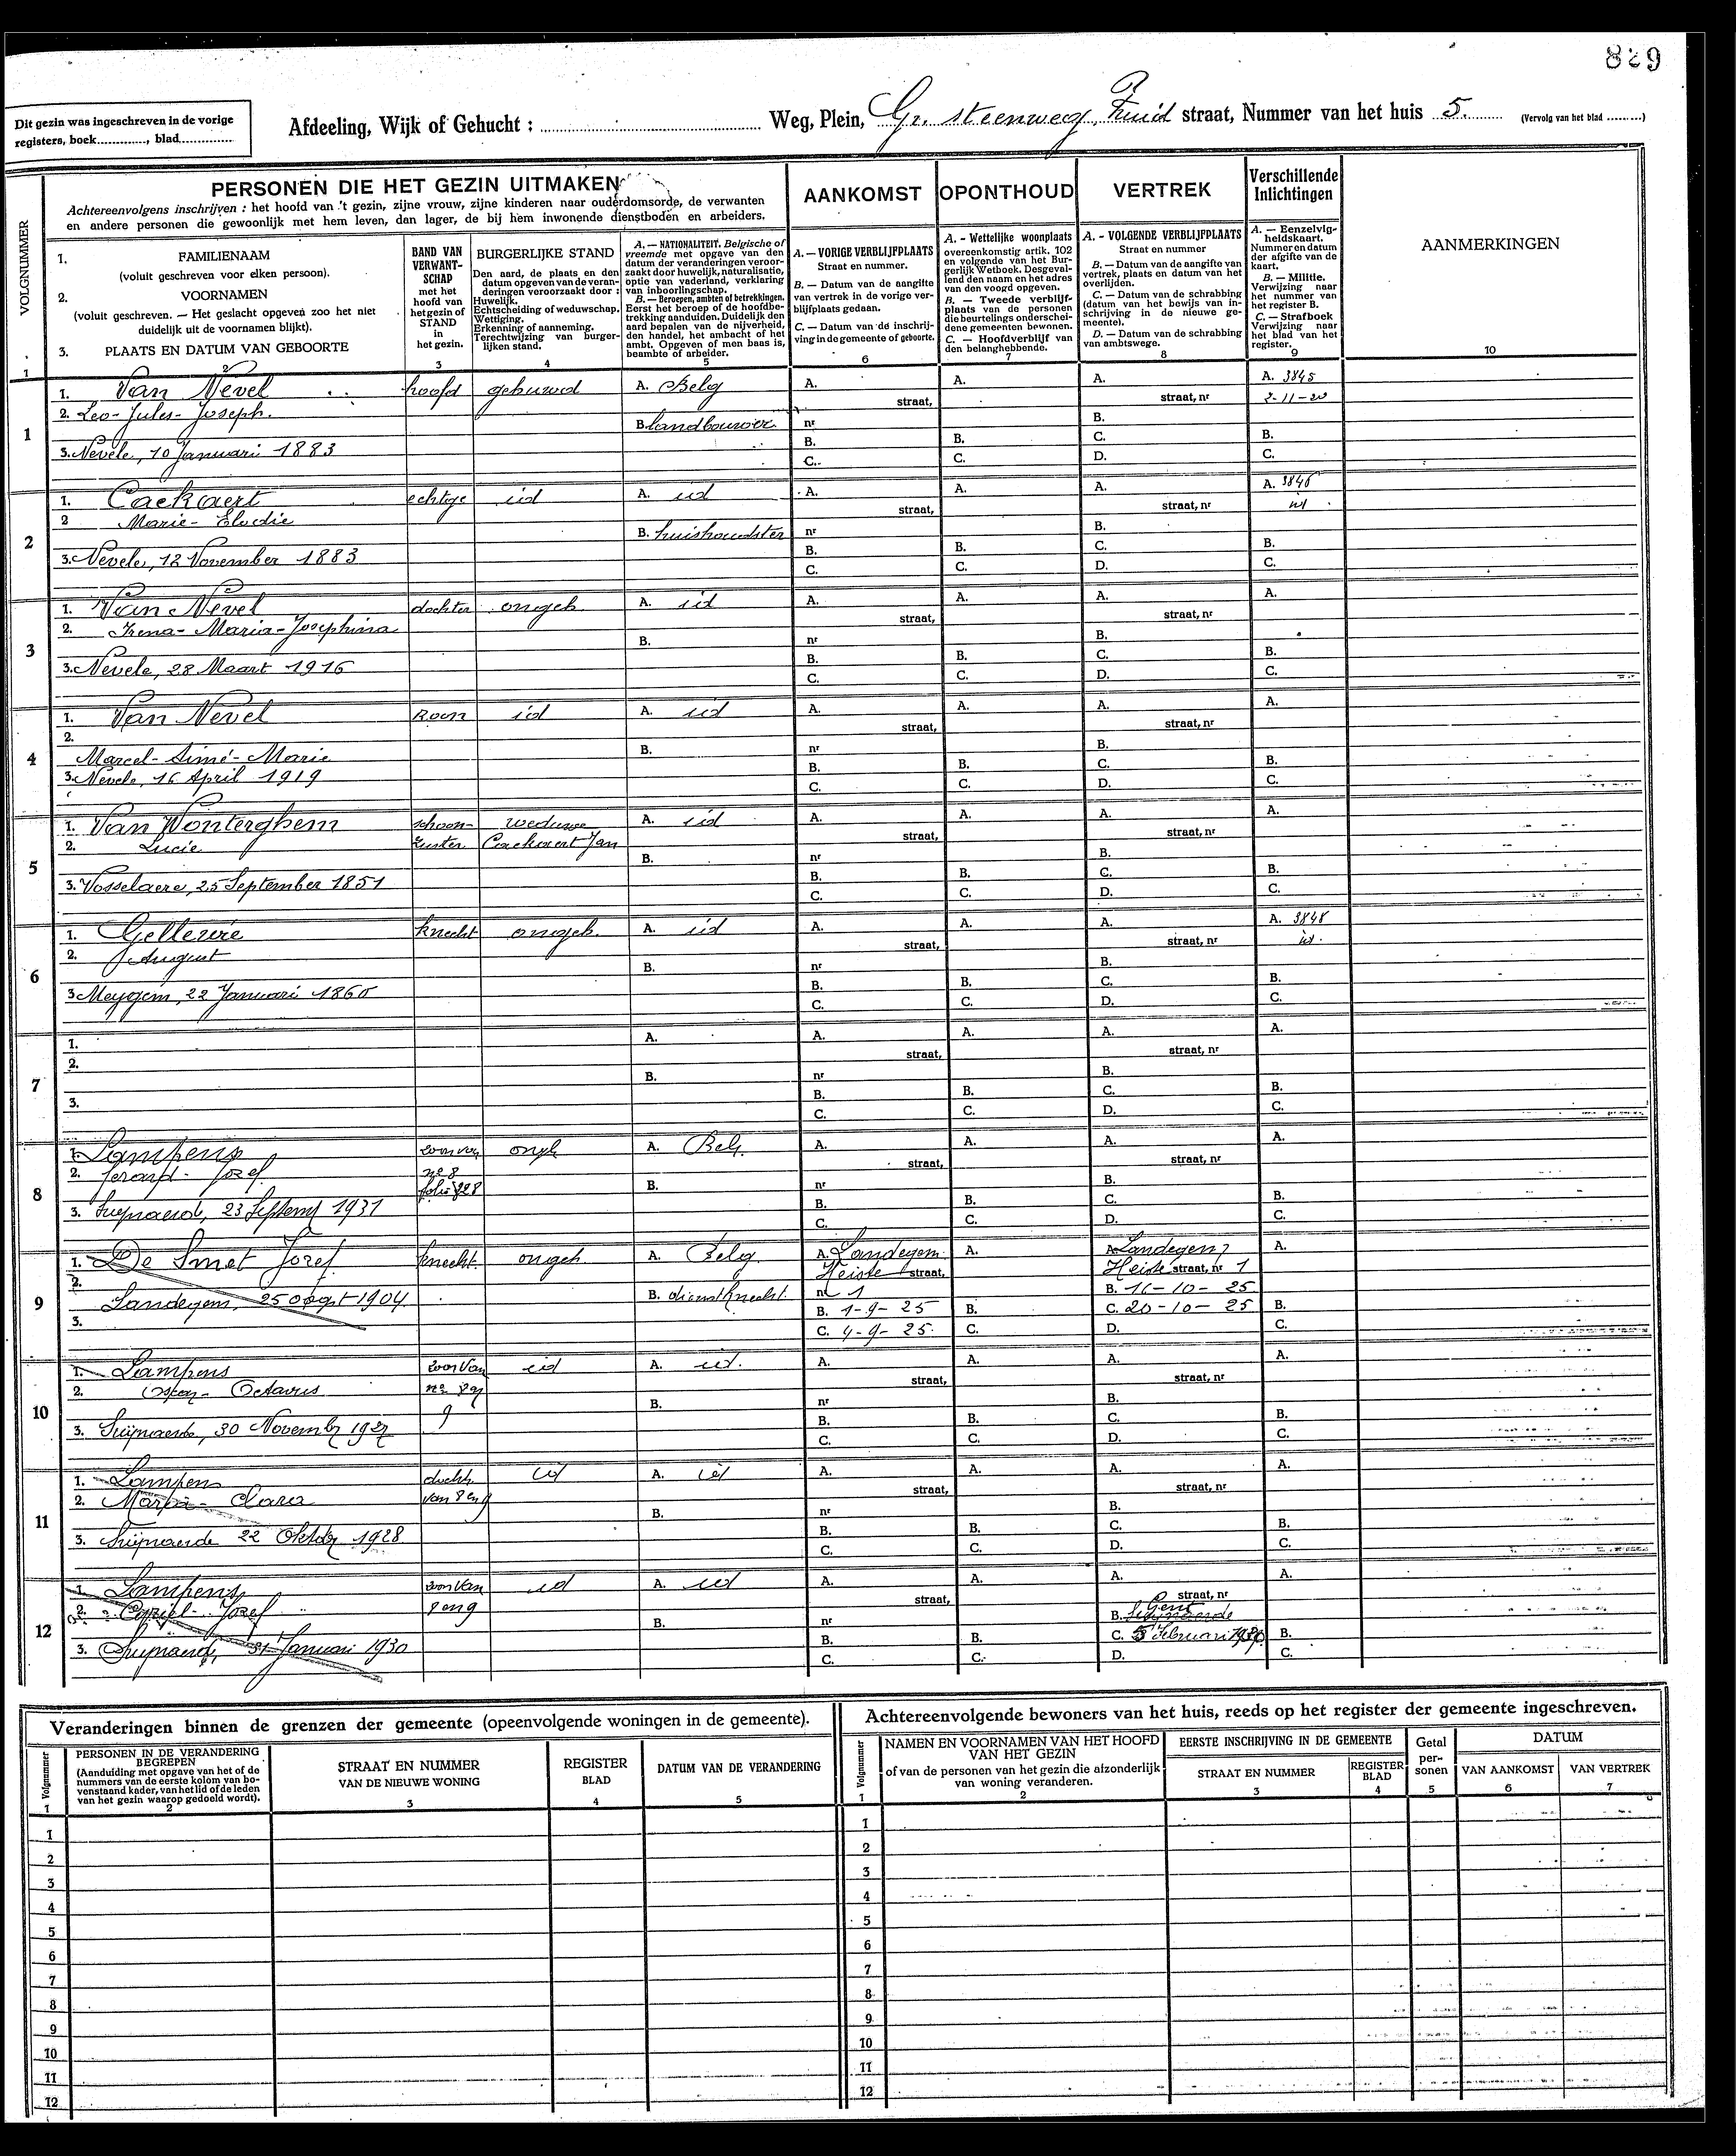 829
Dit gezin was ingeschreven in de vorige
registers, boek............., blad..............
Afdeeling, Wijk of Gehucht : ............ Weg, Plein, Gr. steenweg, Zuid straat, Nummer van het huis 5. (Vervolg van het blad .........)
VOLGNUMMER
1
PERSONEN DIE HET GEZIN UITMAKEN
Achtereenvolgens inschrijven : het hoofd van 't gezin, zijne vrouw, zijne kinderen naar ouderdomsorde, de verwanten
en andere personen die gewoonlijk met hem leven, dan lager, de bij hem inwonende dienstboden en arbeiders.
1. FAMILIENAAM
(voluit geschreven voor elken persoon).
2. VOORNAMEN
(voluit geschreven. — Het geslacht opgeven zoo het niet
duidelijk uit de voornamen blijkt).
3. PLAATS EN DATUM VAN GEBOORTE
2
BAND VAN
VERWANT-
SCHAP
met het
hoofd van
het gezin of
STAND
in
het gezin.
3
BURGERLIJKE STAND
Den aard, de plaats en den
datum opgeven van de veran-
deringen veroorzaakt door :
Huwelijk.
Echtscheiding of weduwschap.
Wettiging.
Erkenning of aanneming.
Terechtwijzing van burger-
lijken stand.
4
A. — NATIONALITEIT. Belgische of
vreemde met opgave van den
datum der veranderingen veroor-
zaakt door huwelijk, naturalisatie,
optie van vaderland, verklaring
van inboorlingschap.
B. — Beroepen, ambten of betrekkingen.
Eerst het beroep of de hoofdbe-
trekking aanduiden. Duidelijk den
aard bepalen van de nijverheid,
den handel, het ambacht of het
ambt. Opgeven of men baas is,
beambte of arbeider.
5
AANKOMST
A. — VORIGE VERBLIJFPLAATS
Straat en nummer.
B. — Datum van de aangifte
van vertrek in de vorige ver-
blijfplaats gedaan.
C. — Datum van de inschrij-
ving in de gemeente of geboorte.
6
OPONTHOUD
A. - Wettelijke woonplaats
overeenkomstig artik. 102
en volgende van het Bur-
gerlijk Wetboek. Desgeval-
lend den naam en het adres
van den voogd opgeven.
B. — Tweede verblijf-
plaats van de personen
die beurtelings onderschei-
dene gemeenten bewonen.
C. — Hoofdverblijf van
den belanghebbende.
7
VERTREK
A. - VOLGENDE VERBLIJFPLAATS
Straat en nummer
B. — Datum van de aangifte van
vertrek, plaats en datum van het
overlijden.
C. — Datum van de schrabbing
(datum van het bewijs van in-
schrijving in de nieuwe ge-
meente).
D. — Datum van de schrabbing
van ambtswege.
8
Verschillende
Inlichtingen
A. — Eenzelvig-
heidskaart.
Nummer en datum
der afgifte van de
kaart.
B. — Militie.
Verwijzing naar
het nummer van
het register B.
C. — Strafboek
Verwijzing naar
het blad van het
register.
9
AANMERKINGEN
10
1
1. Van Nevel hoofd gehuwd A. Belg A. A. A. A. 3845
2. Leo-Jules-Joseph. straat, straat, nr 2-11-20
B. landbouwer nr B.
3. Nevele, 10 Januari 1883 B. B. C. B.
C. C. D. C.
2
1. Caekaert echtge id A. id A. A. A. A. 3846
2 Marie-Elodie straat, straat, nr id
B. huishoudster nr B.
3. Nevele, 12 November 1883 B. B. C. B.
C. C. D. C.
3
1. Van Nevel dochter ongeh A. id A. A. A. A.
2. Irena-Maria-Josephina straat, straat, nr
B. nr B.
3. Nevele, 28 Maart 1916 B. B. C. B.
C. C. D. C.
4
1. Van Nevel zoon id A. id A. A. A. A.
2. straat, straat, nr
Marcel-Aimé-Marie B. nr B.
3. Nevele, 16 April 1919 B. B. C. B.
C. C. D. C.
5
1. Van Wonterghem schoon- weduwe A. id A. A. A. A.
2. Lucie zuster Caekaert Jan straat, straat, nr
B. nr B.
3. Vosselaere, 25 September 1851 B. B. C. B.
C. C. D. C.
6
1. Gelleure knecht ongeh. A. id A. A. A. A. 3848
2. August straat, straat, nr id.
B. nr B.
3 Meygem, 22 Januari 1860 B. B. C. B.
C. C. D. C.
7
1. A. A. A. A. A.
2. straat, straat, nr
B. nr B.
3. B. B. C. B.
C. C. D. C.
8
1. Lampens zoon van ongh A. Belg. A. A. A. A.
2. Gerard-Jozef n° 8 straat, straat, nr
folio 828 B. nr B.
3. Swijnaerde, 23 Septemb 1931 B. B. C. B.
C. C. D. C.
9
1. De Smet Jozef knecht ongeh A. Belg A. Landegem A. A. Landegem A.
2. Heiste straat, Heiste straat, nr 1
Landegem, 25 oogst 1904 B. dienstknecht. nr 1 B. 16-10-25
3. B. 1-9-25 B. C. 20-10-25 B.
C. 4-9-25. C. D. C.
10
1. Lampens zoon van id A. id. A. A. A. A.
2. Oskar-Octavus n° 8 en straat, straat, nr
9 B. nr B.
3. Swijnaerde, 30 Novembr 1927 B. B. C. B.
C. C. D. C.
11
1. Lampens docht. id A. id A. A. A. A.
2. Maria-Clara van 8 en 9 straat, straat, nr
B. nr B.
3. Swijnaerde 22 Oktobr 1928 B. B. C. B.
C. C. D. C.
12
1. Lampens zoon van id A. id A. A. A. A.
2. Cyriel-Jozef 8 en 9 straat, Gent straat, nr
B. nr B. Swijnaerde
3. Swijnaerde, 31 Januari 1930 B. B. C. 5 Februari 1930 B.
C. C. D. C.
Veranderingen binnen de grenzen der gemeente (opeenvolgende woningen in de gemeente).
Volgnummer
1
PERSONEN IN DE VERANDERING
BEGREPEN
(Aanduiding met opgave van het of de
nummers van de eerste kolom van bo-
venstaand kader, van het lid of de leden
van het gezin waarop gedoeld wordt).
2
STRAAT EN NUMMER
VAN DE NIEUWE WONING
3
REGISTER
BLAD
4
DATUM VAN DE VERANDERING
5
1
2
3
4
5
6
7
8
9
10
11
12
Achtereenvolgende bewoners van het huis, reeds op het register der gemeente ingeschreven.
Volgnummer
1
NAMEN EN VOORNAMEN VAN HET HOOFD
VAN HET GEZIN
of van de personen van het gezin die afzonderlijk
van woning veranderen.
2
EERSTE INSCHRIJVING IN DE GEMEENTE
STRAAT EN NUMMER
3
REGISTER
BLAD
4
Getal
per-
sonen
5
DATUM
VAN AANKOMST
6
VAN VERTREK
7
1
2
3
4
5
6
7
8
9
10
11
12